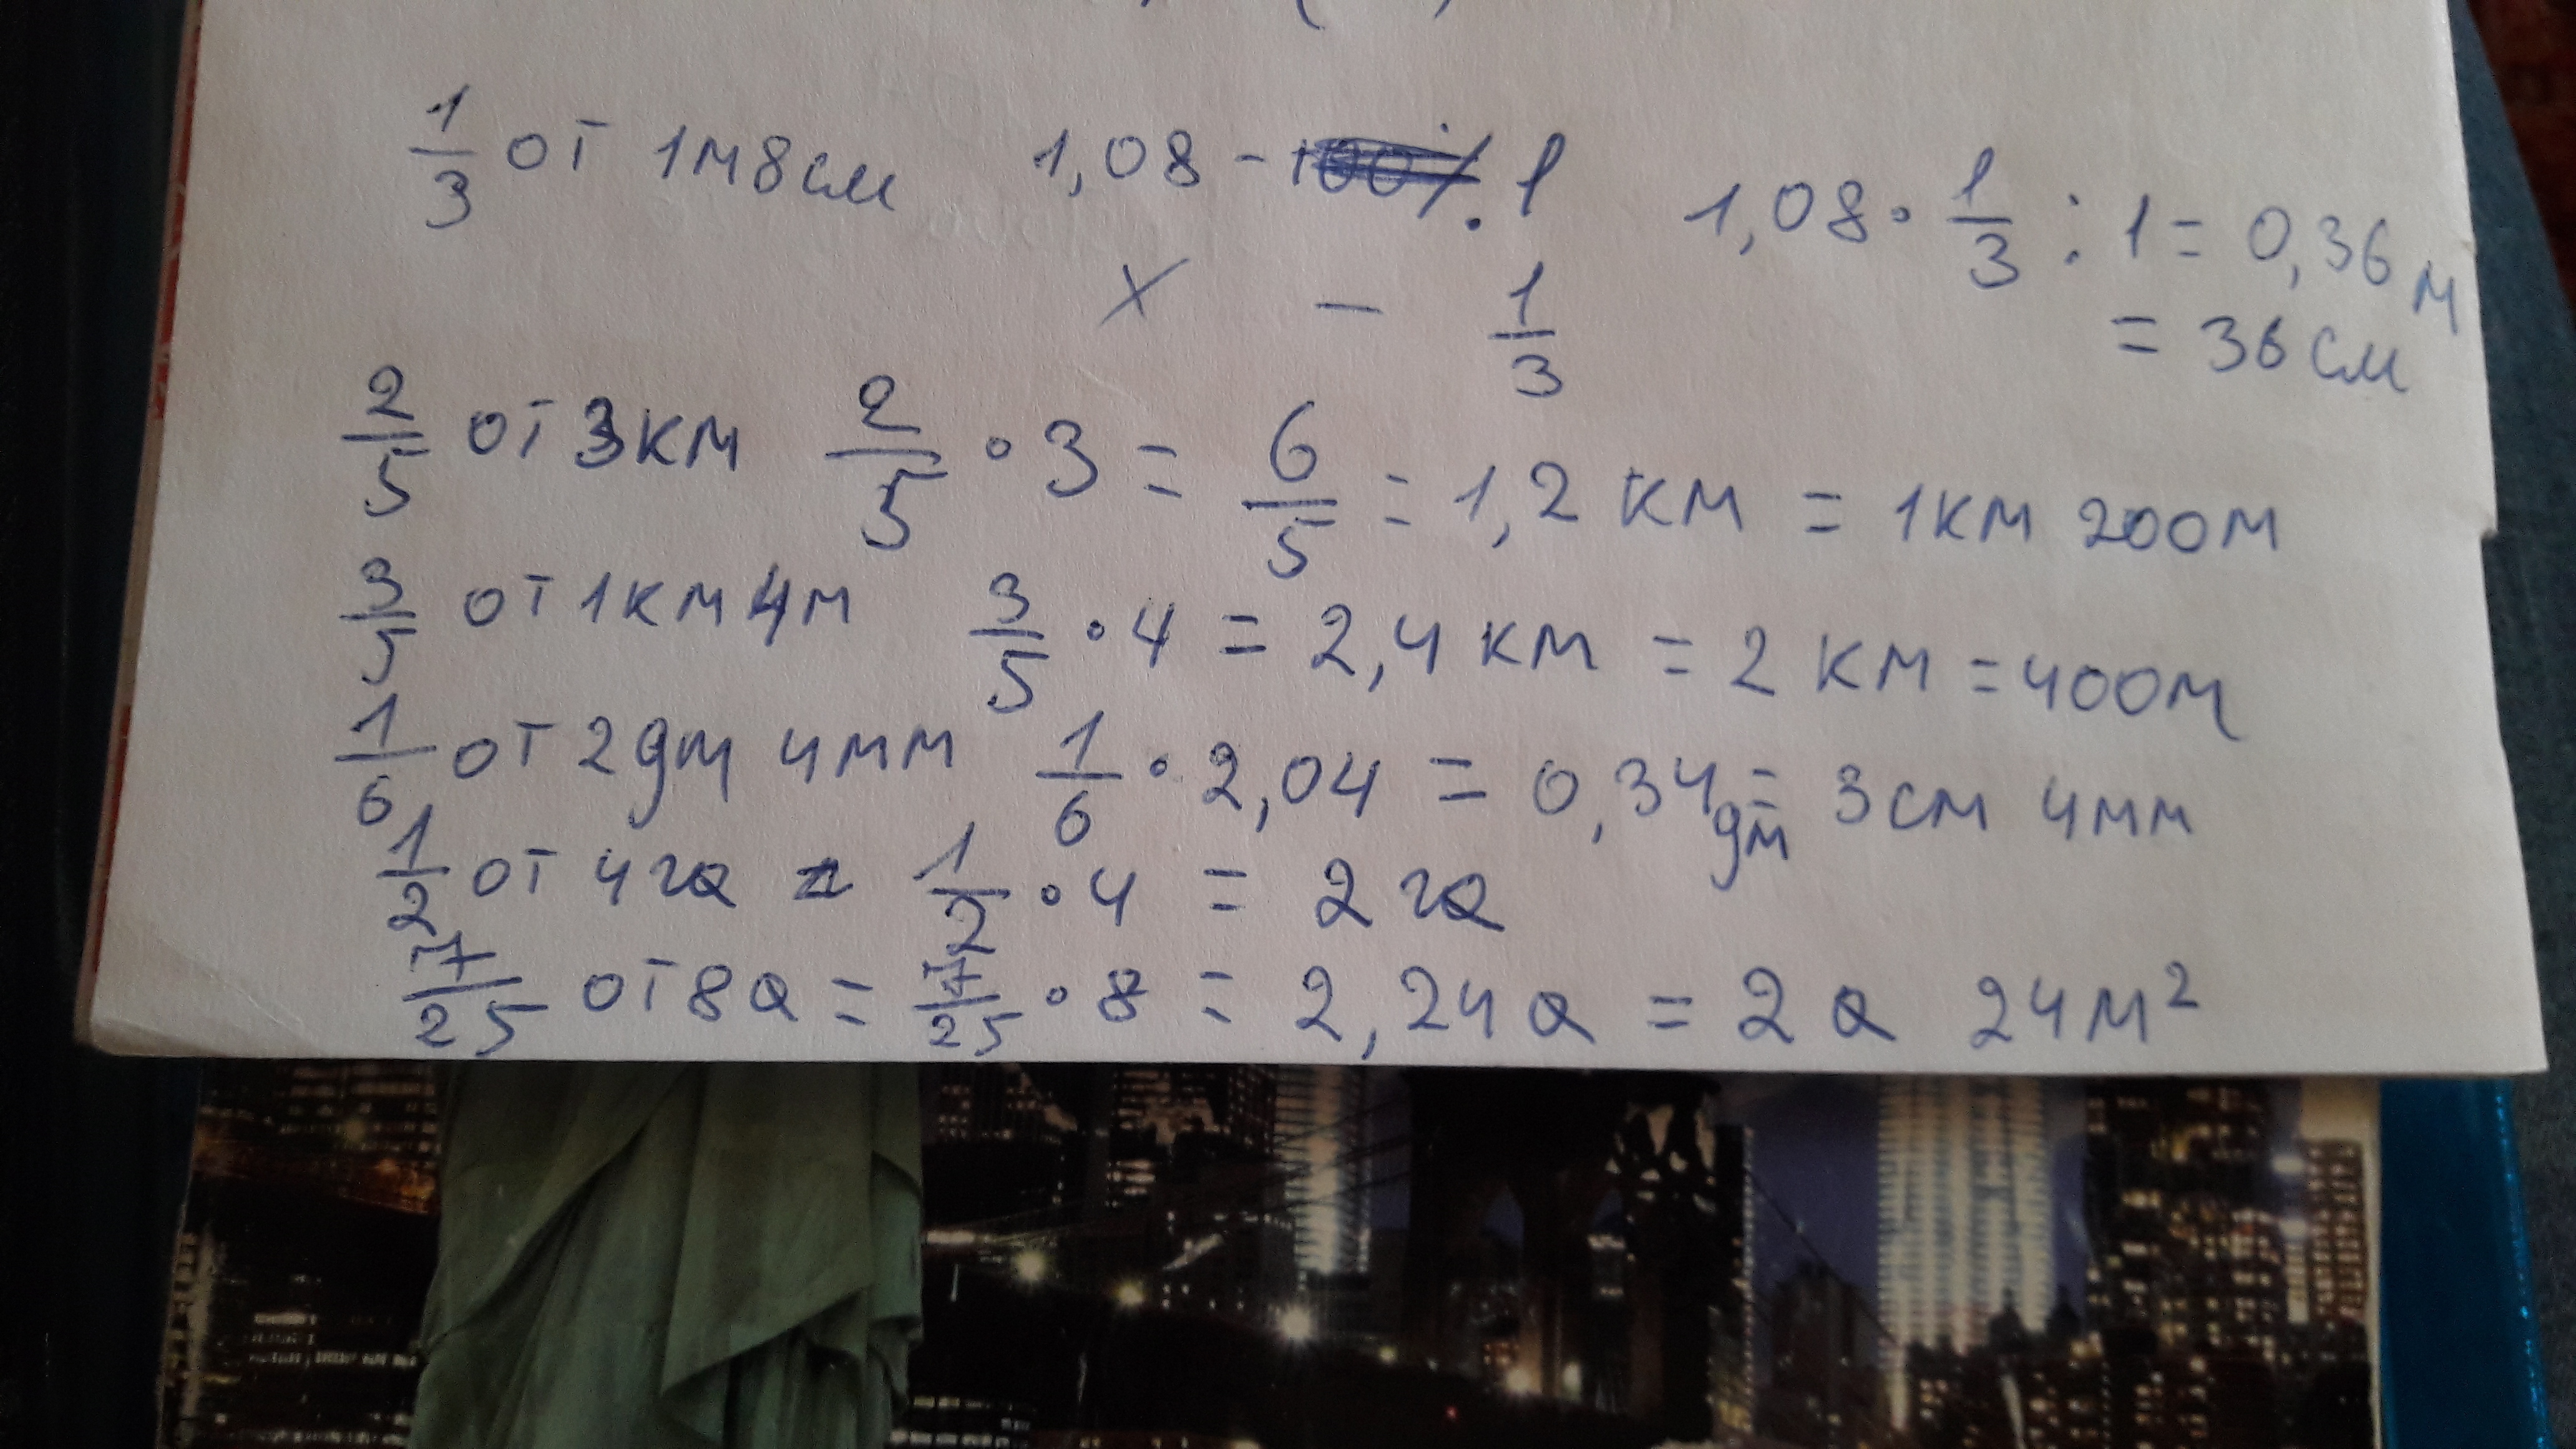 1/3 от 1м8см 1,08 - 1 1,08 · 1/3 : 1 = 0,36 м
х - 1/3 = 36 см
2/5 от 3км 2/5 · 3 = 6/5 = 1,2 км = 1км 200м
3/5 от 1км 4м 3/5 · 4 = 2,4 км = 2 км = 400м
1/6 от 2дм 4мм 1/6 · 2,04 = 0,34дм = 3см 4мм
1/2 от 4га = 1/2 · 4 = 2 га
7/25 от 8а = 7/25 · 8 = 2,24а = 2 а 24м²